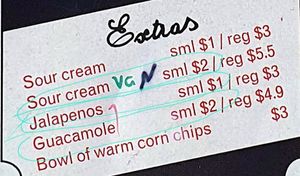 Extras
Sour cream sml $1 / reg $3
Sour cream VG N sml $2 / reg $5.5
Jalapenos sml $1 / reg $3
Guacamole sml $2 / reg $4.9
Bowl of warm corn chips $3